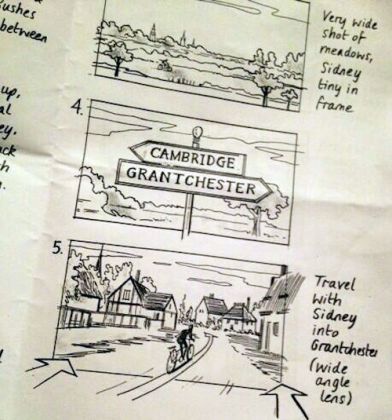 ushes
between
up,
al
ey.
ack
h
Very wide
shot of
meadows,
Sidney
tiny in
frame
4.
CAMBRIDGE
GRANTCHESTER
5.
Travel
with
Sidney
into
Grantchester
(wide
angle
lens)